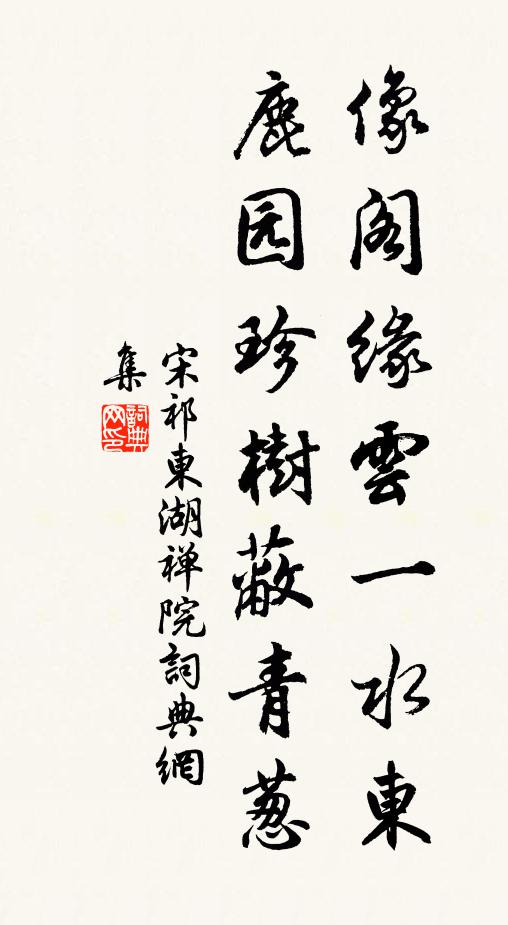 像阁缘雲一水東
鹿园珍樹蔽青葱
宋祁東湖禅院詞典網
集
詞典网印